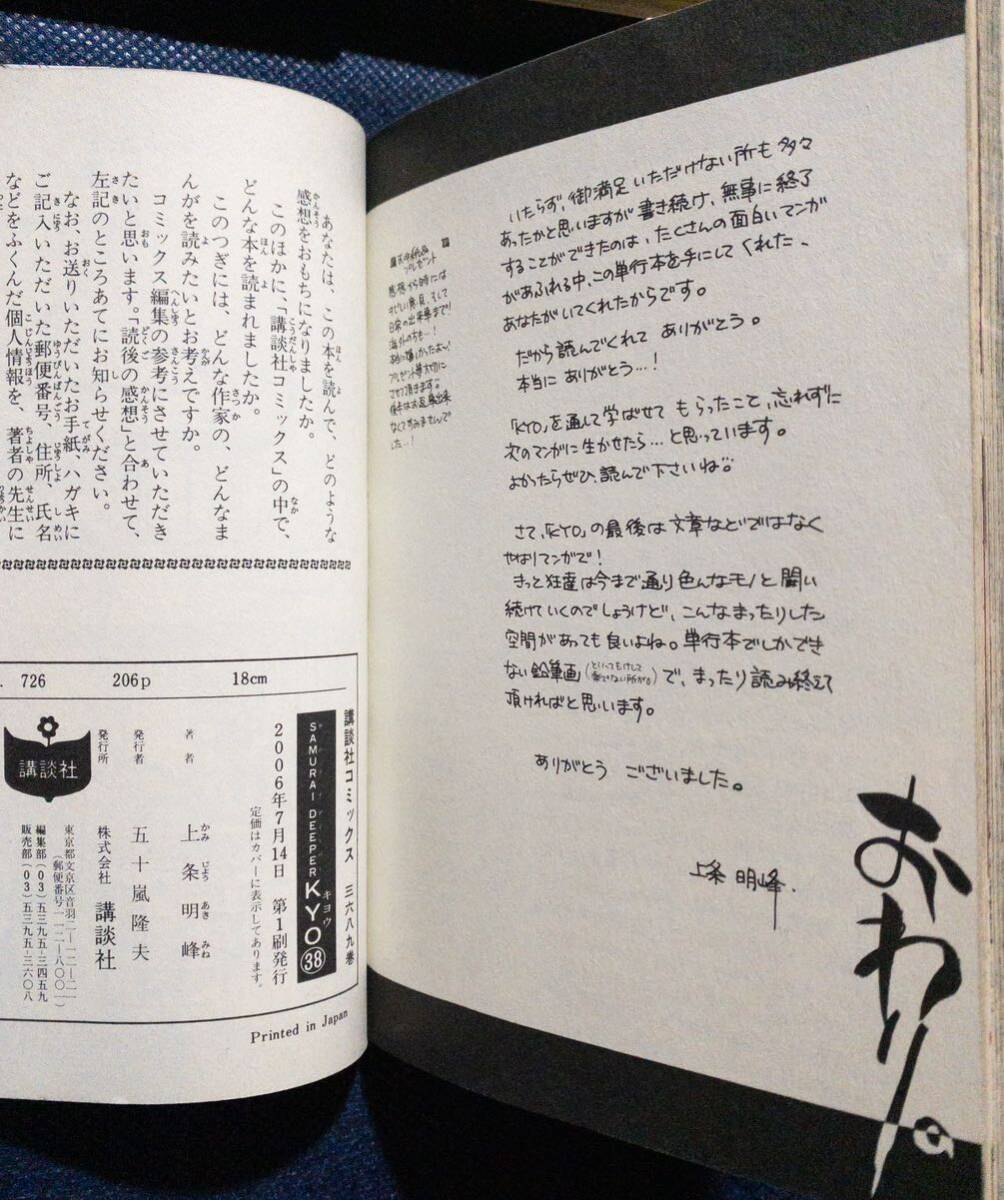 いたらず、御満足いただけない所も多々
あったかと思いますが書き続け、無事に終了
することができたのは、たくさんの面白いマンガ
があふれる中、この単行本を手にしてくれた、
あなたがいてくれたからです。
だから読んでくれて ありがとう。
本当に ありがとう…!
「KYO」を通して学ばせて もらったこと、忘れずに
次のマンガに生かせたら…と思っています。
よかったらぜひ、読んで下さいね
さて、「KYO」の最後は文章などではなく
やはりマンガで!
きっと狂達は今まで通り色んなモノと闘い
続けていくのでしょうけど、こんなまったりした
空間があっても良いよね。単行本でしかでき
ない鉛筆画で、まったり読み終えて
頂ければと思います。
ありがとう ございました。
上条 明峰.
おわり。
プレゼント
あなたは、この本を読んで、どのような
感想をおもちになりましたか。
このほかに、「講談社コミックス」の中で、
どんな本を読まれましたか。
このつぎには、どんな作家の、どんなま
んがを読みたいとお考えですか。
コミックス編集の参考にさせていただき
たいと思います。「読後の感想」と合わせて、
左記のところあてにお知らせください。
なお、お送りいただいたお手紙、ハガキに
ご記入いただいた郵便番号、住所、氏名
などをふくんだ個人情報を、著者の先生に
726 206p 18cm
講談社コミックス 三六八九巻
SAMURAI DEEPER KYO キョウ ㊳
2006年7月14日 第1刷発行
定価はカバーに表示してあります。
著者 上条明峰
かみ じょう あき みね
発行者 五十嵐隆夫
発行所 株式会社 講談社
東京都文京区音羽二―一二―二一
(郵便番号一一二―八〇〇一)
編集部(03)五三九五―三四五九
販売部(03)五三九五―三六〇八
講談社
Printed in Japan